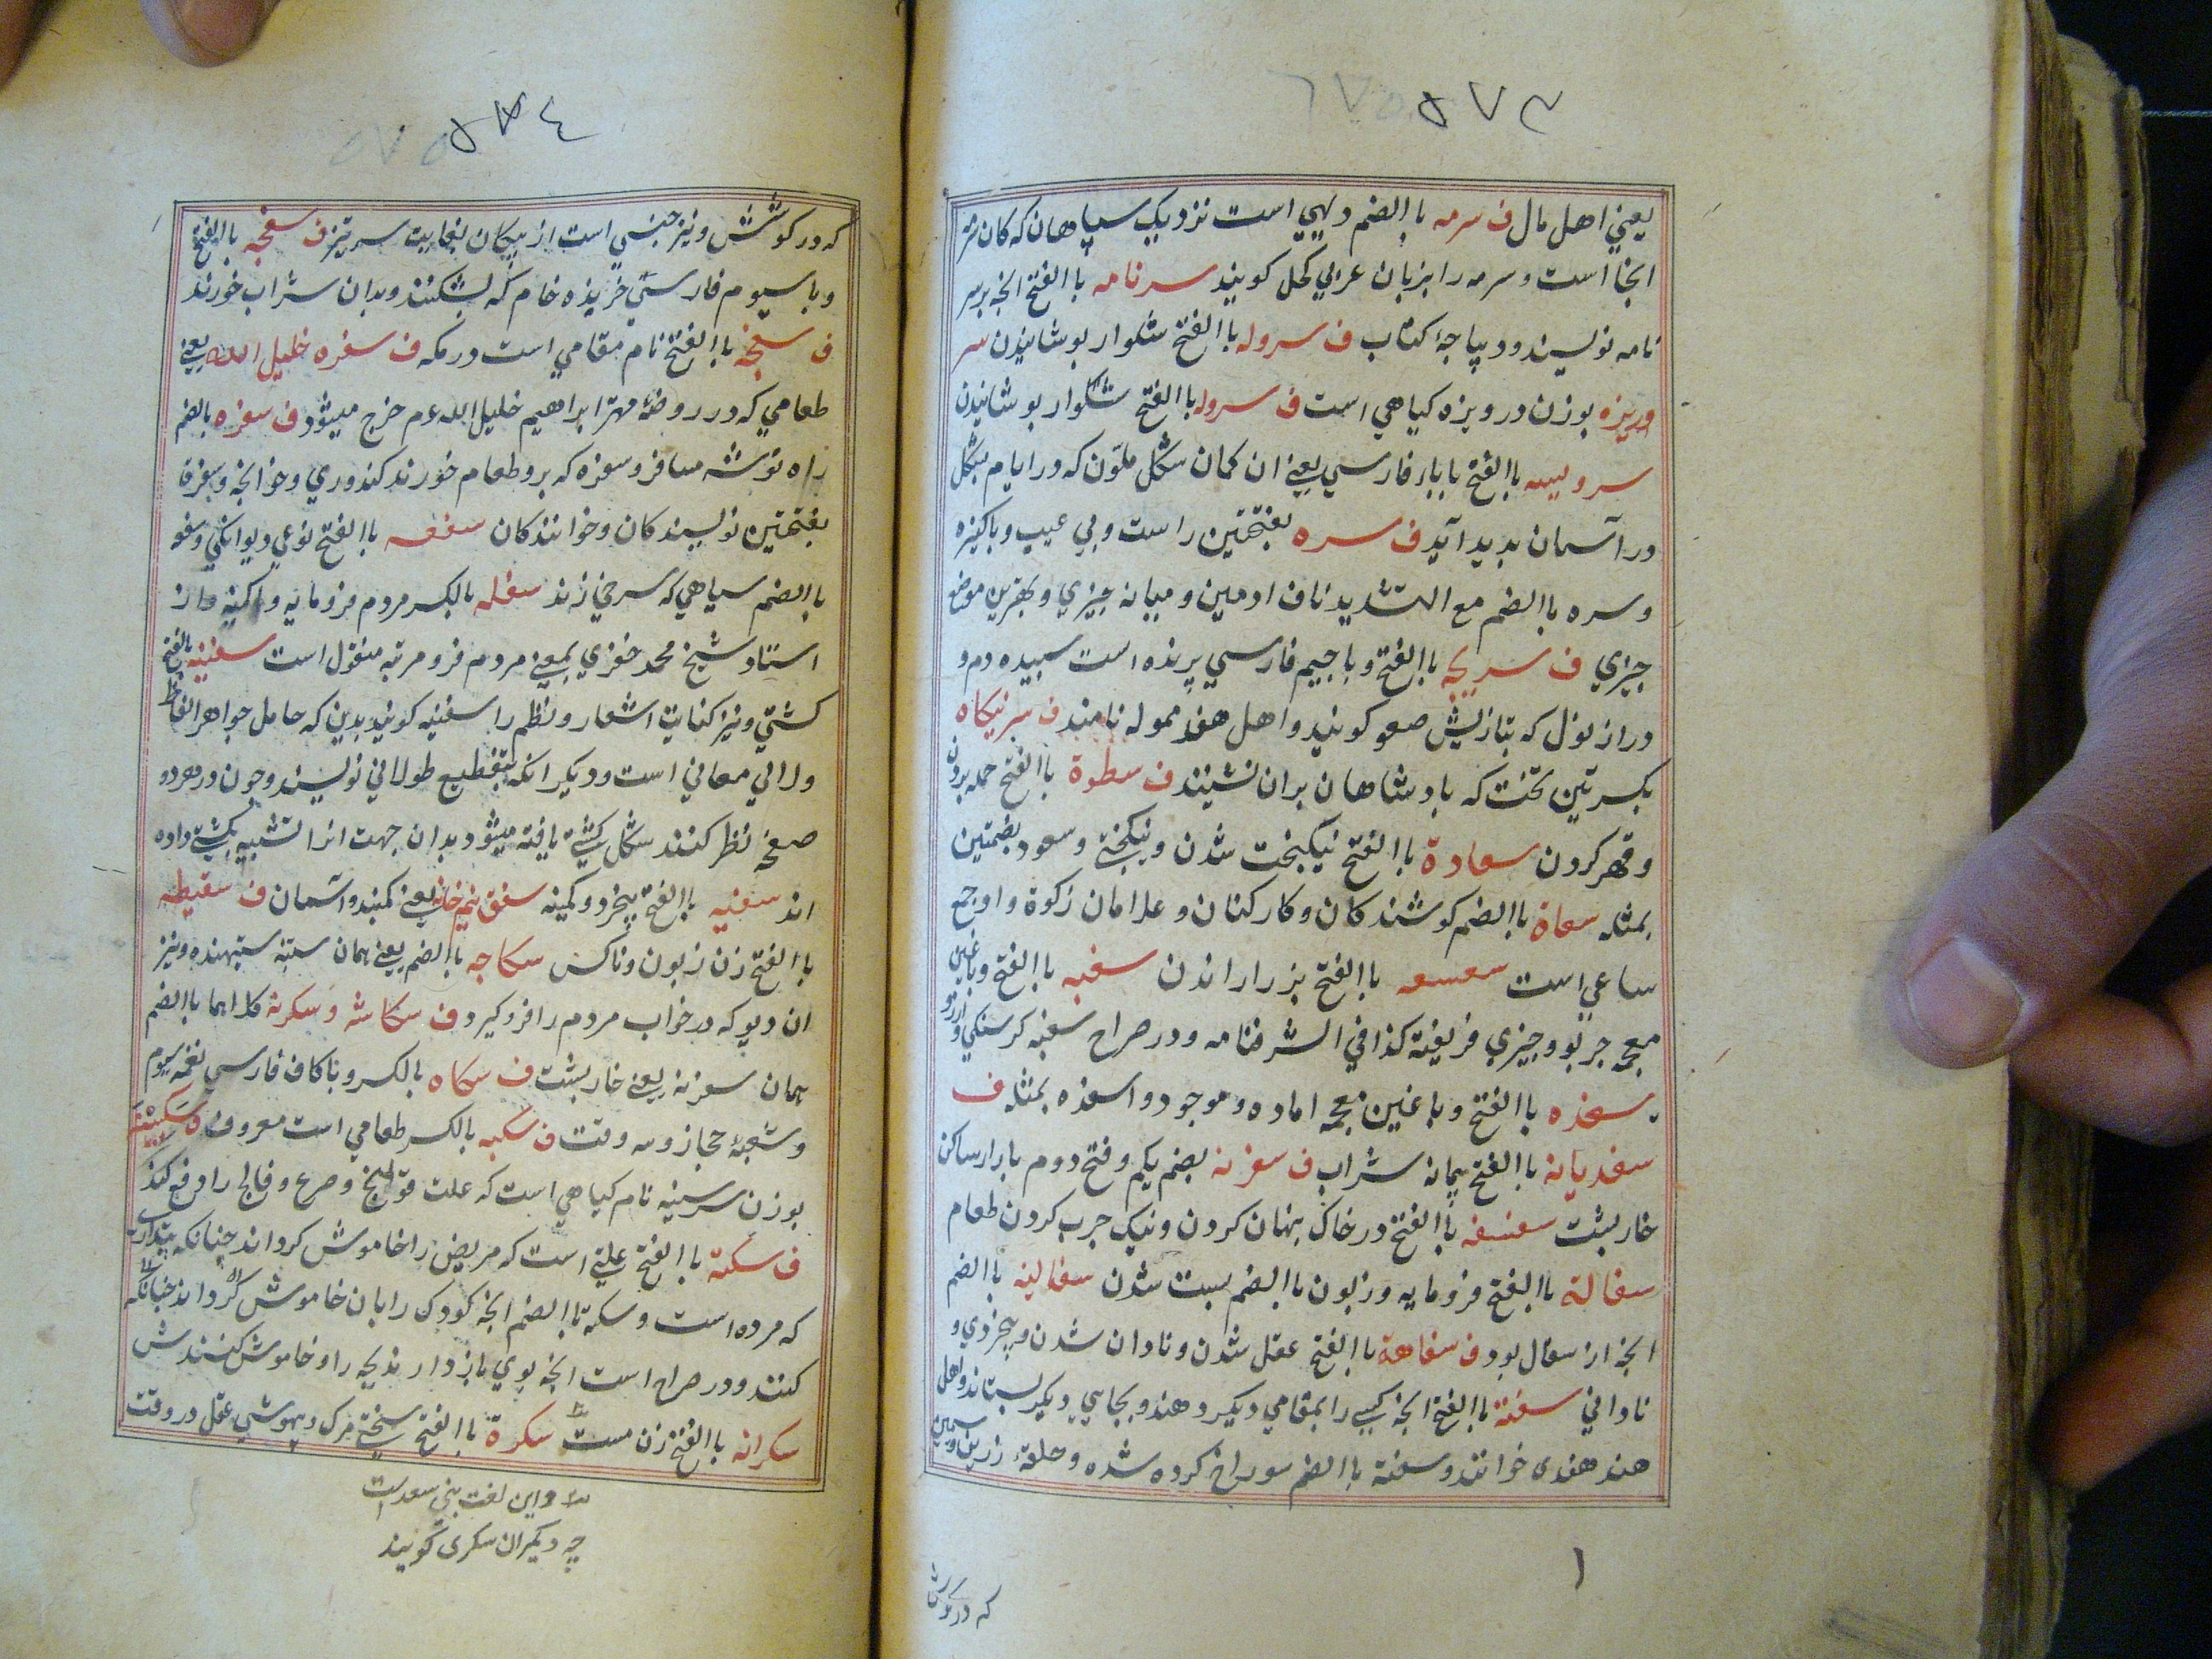 ۵۷۳
یعنی اهل مال ف سرمه باالضم دیهی است نزدیک سپاهان که کان سرمه
انجا است و سرمه را بزبان عربی کحل کویند سرنامه باالفتح انچه برسر
نامه نویسند و دیباجهٔ کتاب ف سروله باالفتح شلوار بوشانیدن سر
وریزه بوزن درویزه کیاهی است ف سروله باالفتح شلوار بوشانیدن
سرویسه باالفتح با باء فارسی یعنی ان کمان شکل ملوّن که در ایام بشکل
در آسمان بدید آید ف سره بفتحتین راست و بی عیب و باکیزه
و سره باالضم مع التشدید ناف ادمین و میانه چیزی و بهترین موضع
چیزی ف سریچه باالفتح و با جیم فارسی پرنده است سپیده دم و
دراز نول که بتازیش صعو کویند و اهل هند ممولہ نامند ف سرنیکاه
بکسرتین تخت که بادشاهان بران نشینند ف سطوة باالفتح حمله بردن
و قهر کردن سعادة باالفتح نیکبخت شدن و نیکبختی و سعود بضمتین
بمثله سعاة باالضم کوشندکان و کارکنان و علامان زکوة و او جمع
ساعی است سعسعه باالفتح بز را راندن سغبه باالفتح و با غین
معجمه چربو و چیزی فریفته کذا فی الشرفنامه و در صراح سغبه کرسنکی و
سغده باالفتح و با غین معجمه اماده و موجود و اسغده بمثله ف
سغدیانه باالفتح پیمانه شراب ف سغرنه بضم یکم و فتح دوم با راء ساکن
خاربشت سغسغه باالفتح در خاک بنهان کردن و نیک چرب کردن طعام
سفالة باالفتح فرومایه و زبون باالضم بست شدن سفالینه باالضم
انچه از سفال بود ف سفاهة باالفتح عقل شدن و نادان شدن و بیخردی و
نادانی سفتة باالفتح انچه کسی را بمقامی دیکر دهند و بجایی دیکر بستاند و اهل
هند هندی خوانند و سفتة باالضم سوراخ کرده شده و حلقه زرین و سیمین
۱
که درکوش
۵۷۴
که در کوشش و نیز جنسی است از پیکان بغایت سرتیز ف سفجه باالفتح
و با سیوم فارسی خربزه خام که بشکنند و بدان شراب خورند
ف سفجه باالفتح نام مقامی است در مکه ف سفره خلیل الله یعنی
طعامی که در روضهٔ مهتر ابراهیم خلیل الله عم خرج میشود ف سفره بالضم
راه توشه مسافر و سفره که برو طعام خورند کندوری و خوانچه و سفرة
بفتحتین نویسندکان و خوانندکان سفعه باالفتح نوعی دیوانکی و سفعه
باالضم سیاهی که سرخی زند سفله بالکسر مردم فرومایه و کمینه و از
استاد شیخ محمد خفری بمعنی مردم فرو مرتبه منقول است سفینه بالفتح
کشتی و نیز کنایت اشعار و نظم را سفینه کویند بدین که حامل جواهر الفاظ
و لالی معانی است و دیکر انکه بتقطیع طولانی نویسند و چون در هر دو
صفحه نظر کنند شکل کشتی یافته میشود بدان جهت انرا تشبیه بکشتی داده
اند سفیه باالفتح بیخرد و کمینه سقف نیم خانه یعنی کنبد و آسمان ف سقیطه
باالفتح زن زبون و ناکس سکاجه باالضم یعنی همان ستنبه ستهنده و نیز
ان دیو که در خواب مردم را فرو کیرد ف سکاشه و سکرنه کلاهما باالضم
همان سغرنه یعنی خاربشت ف سکاه بالکسر و با کاف فارسی نغمه سیوم
و شعبهٔ حجاز و سه وقت ف سکبه بالکسر طعامی است معروف ف
بوزن سرسینه نام کیاهی است که علت قولنج و صرع و فالج را دفع کند
ف سکتة باالفتح علتی است که مریض را خاموش کرداند چنانکه بنداری
که مرده است و سکته باالضم انچه کودک را بان خاموش کرداند چنانکه
کنند و در صراح است انچه بوی باز دار ند بچه را و خاموش کنندش
سکرانه باالفتح زن مست سکرة باالفتح سختی مرک و بیهوشی عقل در وقت
و این لغت بنی سعد است
چه دیکران سکری کویند